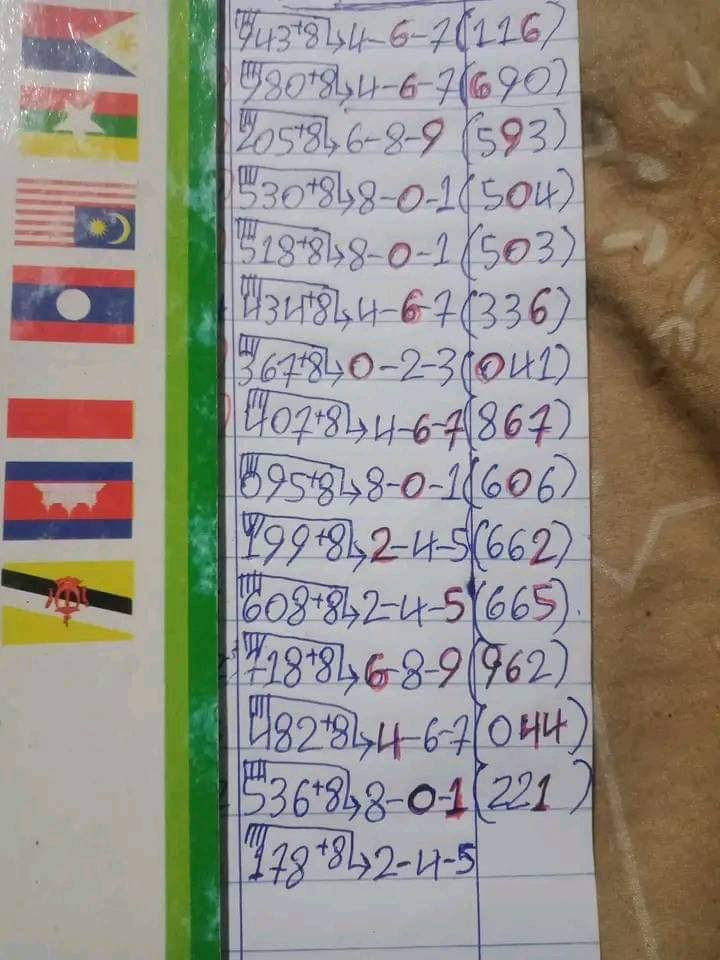 943+8↳4-6-7(116)
980+8↳4-6-7(690)
205+8↳6-8-9(593)
530+8↳8-0-1(504)
518+8↳8-0-1(503)
434+8↳4-6-7(336)
367+8↳0-2-3(041)
407+8↳4-6-7(867)
095+8↳8-0-1(606)
199+8↳2-4-5(662)
608+8↳2-4-5(665).
718+8↳6-8-9(962)
482+8↳4-6-7(044)
536+8↳8-0-1(221)
178+8↳2-4-5